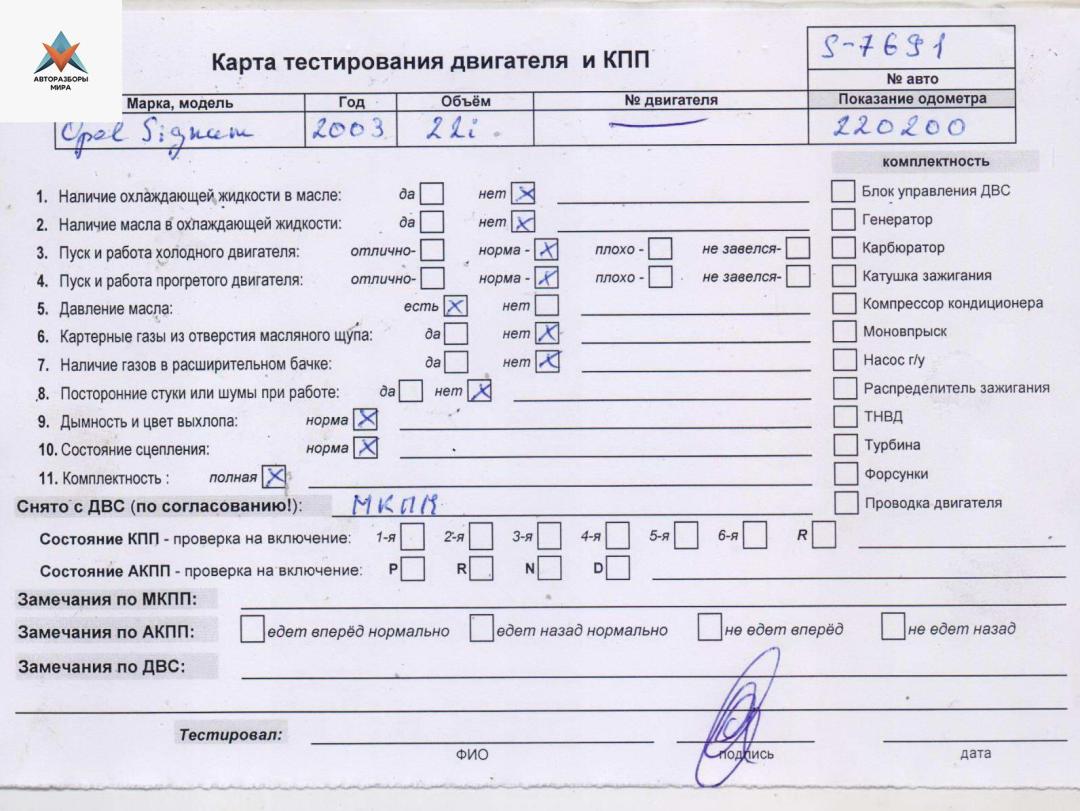 АВТОРАЗБОРЫ
МИРА
Карта тестирования двигателя и КПП
S-7691
№ авто
Марка, модель Год Объём № двигателя Показание одометра
Opel Signum 2003 22i 220200
комплектность
1. Наличие охлаждающей жидкости в масле: да нет
2. Наличие масла в охлаждающей жидкости: да нет
3. Пуск и работа холодного двигателя: отлично- норма - плохо - не завелся-
4. Пуск и работа прогретого двигателя: отлично- норма - плохо - не завелся-
5. Давление масла: есть нет
6. Картерные газы из отверстия масляного щупа: да нет
7. Наличие газов в расширительном бачке: да нет
8. Посторонние стуки или шумы при работе: да нет
9. Дымность и цвет выхлопа: норма
10. Состояние сцепления: норма
11. Комплектность : полная
Блок управления ДВС
Генератор
Карбюратор
Катушка зажигания
Компрессор кондиционера
Моновпрыск
Насос г/у
Распределитель зажигания
ТНВД
Турбина
Форсунки
Проводка двигателя
Снято с ДВС (по согласованию!): МКПП
Состояние КПП - проверка на включение: 1-я 2-я 3-я 4-я 5-я 6-я R
Состояние АКПП - проверка на включение: P R N D
Замечания по МКПП:
Замечания по АКПП: едет вперёд нормально едет назад нормально не едет вперёд не едет назад
Замечания по ДВС:
Тестировал:
ФИО подпись дата